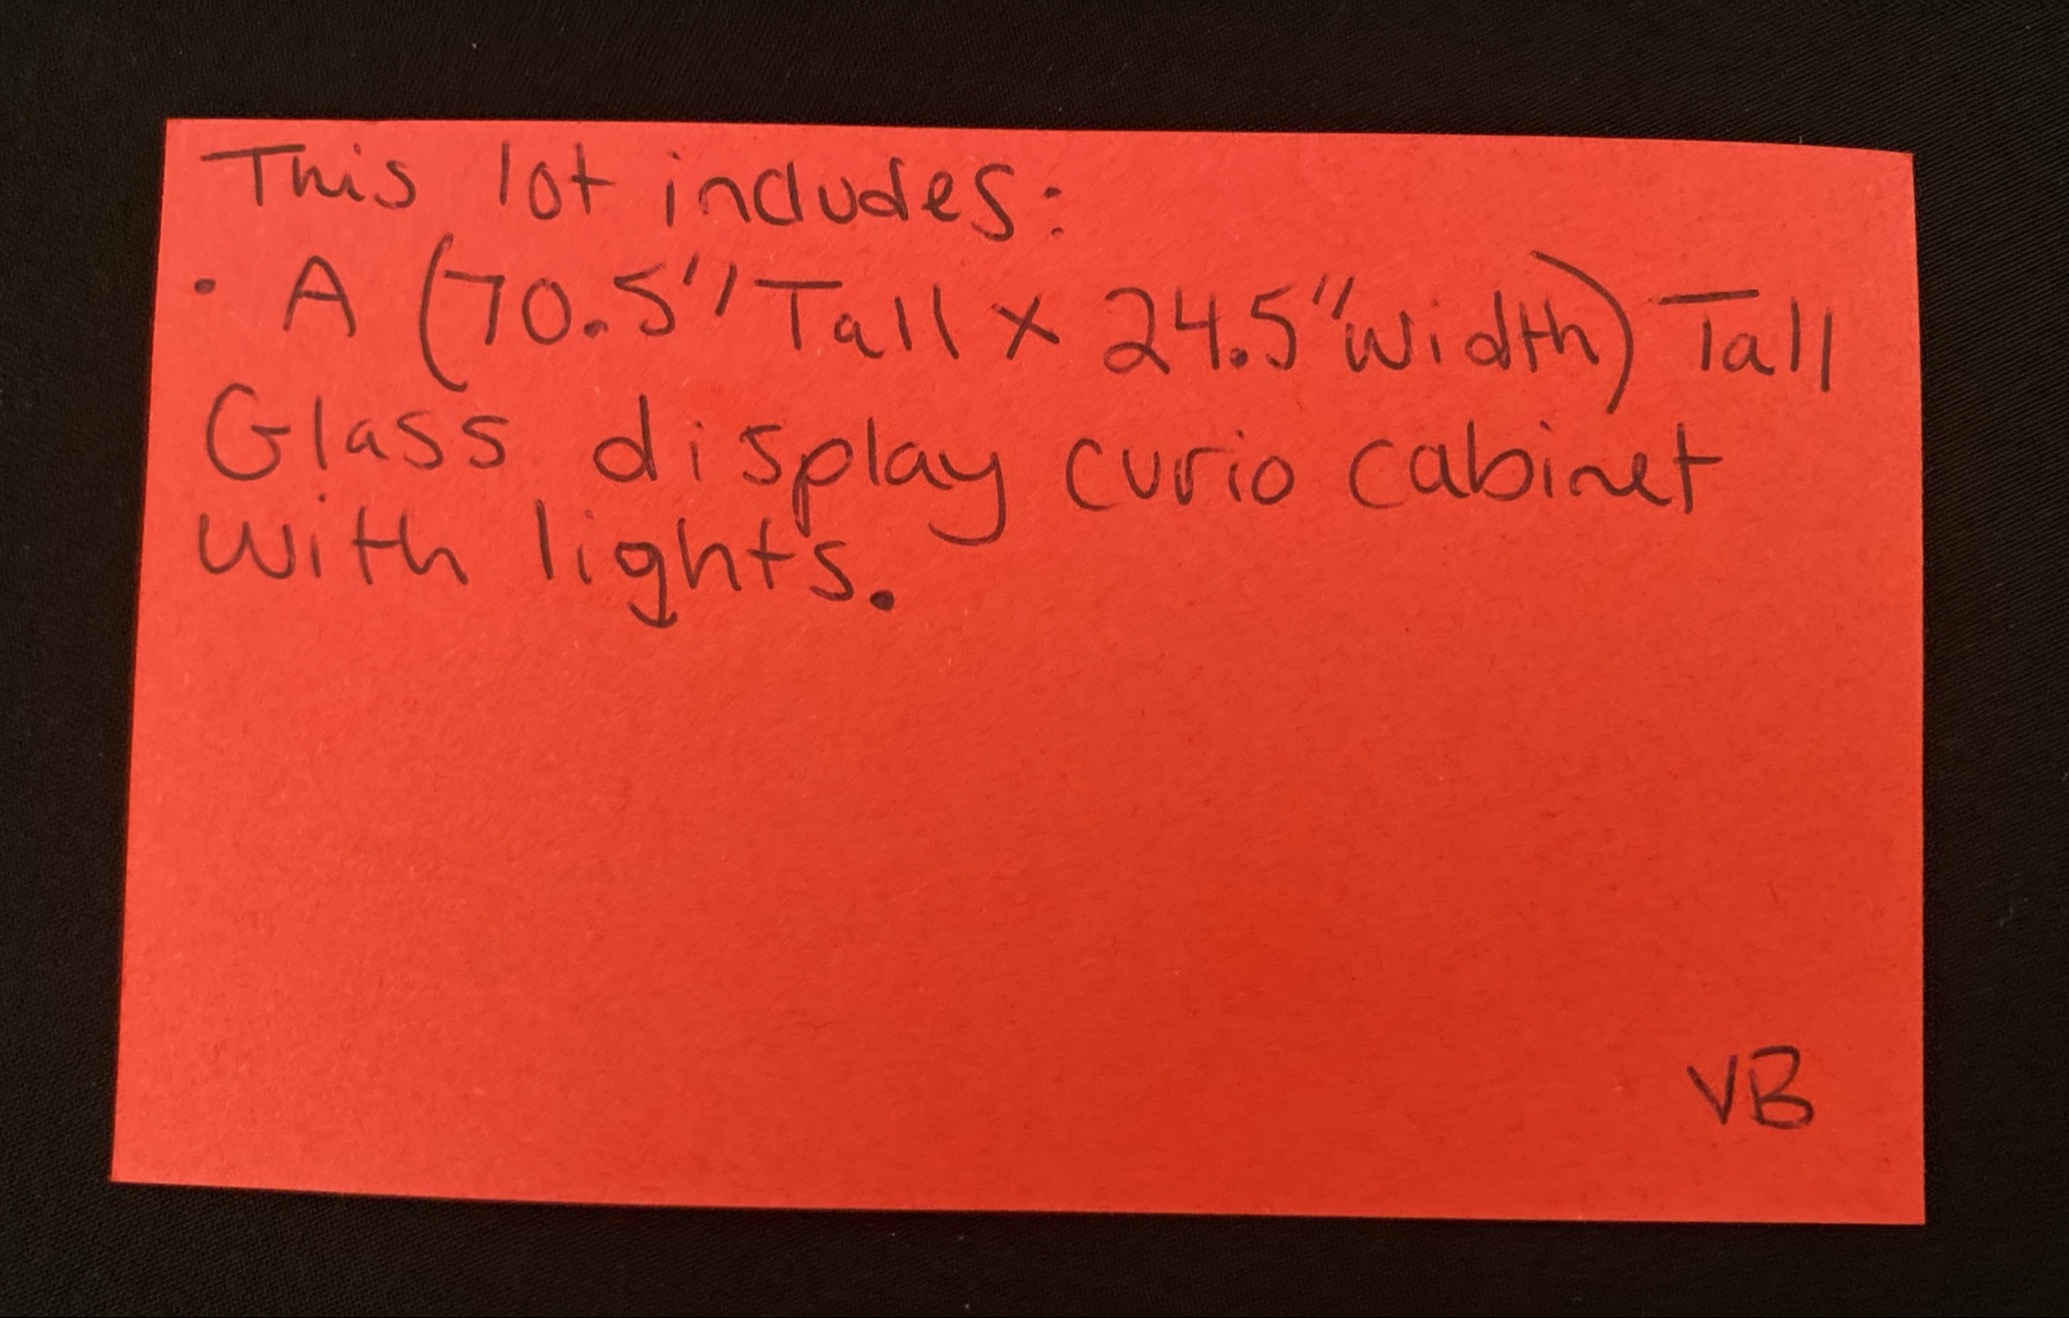 This lot includes:
· A (70.5" Tall x 24.5" width) Tall
Glass display curio cabinet
with lights.
VB